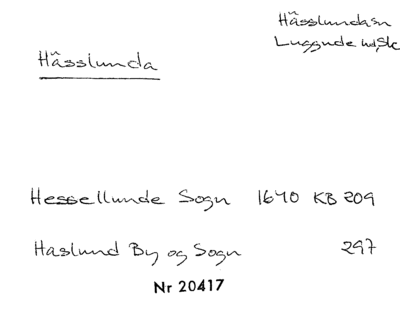 Hässlundasn
Luggude hd, Sk
Hässlunda
Hessellunde Sogn 1640 KB 209
Haslund By og Sogn 297
Nr 20417